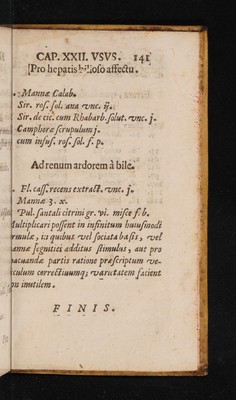 CAP. XXII. VSVS. 141
Pro hepatis bilioso affectu.
. Mannæ Calab.
Sir. ros. sol. ana vnc. ij.
Sir. de cic. cum Rhabarb. solut. vnc. j.
Camphoræ scrupulum j.
cum infus. ros. sol. f. p.
Ad renum ardorem à bile.
. Fl. cass. recens extract. vnc. j.
Mannæ 3. x.
Pul. santali citrini gr. vi. misce f. b.
Multiplicari possent in infinitum huiusmodi
rmulæ, in quibus vel sociata basis, vel
annæ segnitiei additus stimulus, aut pro
uacuandæ partis ratione præscriptum ve-
culum correctiuumq; varietatem facient
on inutilem.
FINIS.